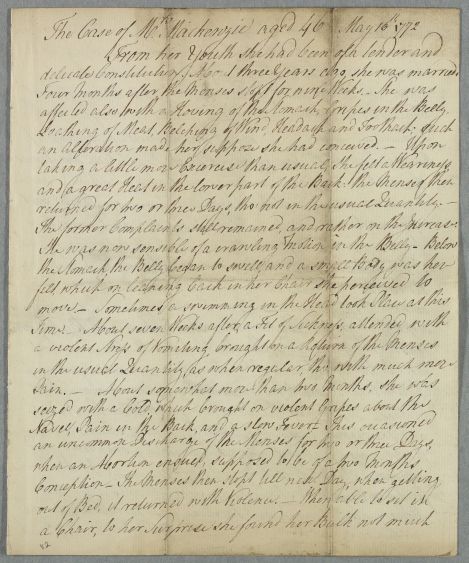 The Case of Mrs. Mackenzie aged 46 May 16th 1772
From her Youth she had been of a tender and
delicate Constitution, About three Years ago, she was married
Four months after the Menses stopt for nine Weeks. — She was
affected also with a Heaving of the Stomach, Gripes in the Belly
Loathing of Meat, Belching of Wind, Headach and Toothach: Such
an alteration made her suppose she had conceived. — Upon
taking a little more Exercise than usual, she felt a Weariness,
and a great Heat in the lower part of the Back: the Menses then
returned for two or three Days, tho' not in the usual Quantity. —
The former Complaints still remained, and rather on the Increase.
She was now sensible of a crawling Motion in the Belly — Below
the Stomach, the Belly began to swell, and a small Body was her
felt which on leaning back in her Chair she perceived to
move. — Sometimes a swimming in the Head took Place at this
time. About seven Weeks after, a Fit of Sickness, attended with
a violent of Vomiting brought on a Return of the Menses
in the usual Quantity, as when regular, tho' with much more
Pain. — About somewhat more than two Months, she was
seized with a Cold, which brought on violent Gripes about the
Navel, Pain in the Back, and a slow Fever: This occasioned
an uncommon Discharge of the Menses for two or three Days,
when an Abortion ensued, supposed to be of a two Months
Conception — The Menses then stopt till next Day, when getting
out of Bed, it returned with Violence. — When able to sit in
a Chair, to her Surprise she found her Bulk not much